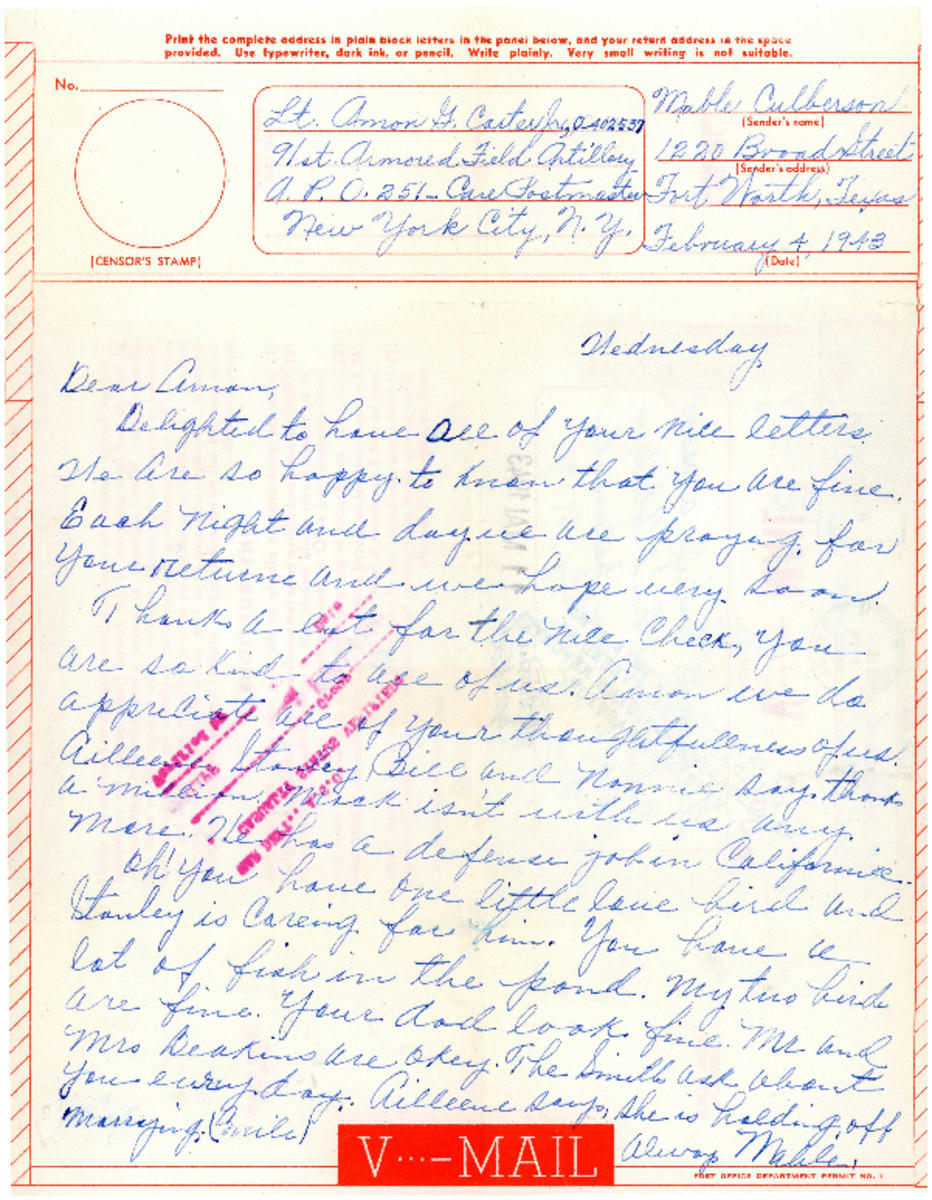 Print the complete address in plain block letters in the panel below, and your return address in the space
provided. Use typewriter, dark ink, or pencil. Write plainly. Very small writing is not suitable.
No.
(CENSOR'S STAMP)
Lt. Amon G. Carter Jr., O-402537
91st. Armored Field Artillery
A. P. O. 251 - Care Postmaster
New York City, N. Y.
Mable Culberson
(Sender's name)
1220 Broad Street
(Sender's address)
Fort Worth, Texas
February 4, 1943
(Date)
Wednesday
Dear Amon,
Delighted to have all of your nice letters.
We are so happy to know that you are fine.
Each night and day we are praying for
your returne and we hope very soon.
Thanks a lot for the nice check, you
are so kind to all of us. Amon we do
appriciate all of your thoughtfullness of us.
Ailleene, Stanley, Bill and Nonnie say thanks
a million, Mack isn't with us any
more. He has a defense job in California.
Oh! You have one little love bird and
Stanley is careing for him. You have a
lot of fish in the pond. My two birds
are fine. Your dad looks fine. Mr and
Mrs Deakins are okey. The Smiths ask about
you every day. Ailleene says, she is holding off
marrying. (smile)
Always Mable.
V···—MAIL
POST OFFICE DEPARTMENT PERMIT NO. 1